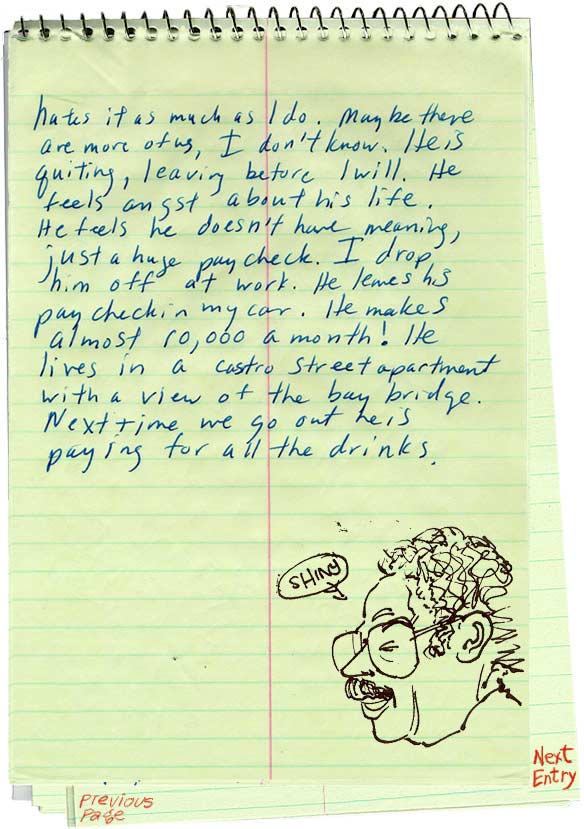 hates it as much as I do. Maybe there
are more of us, I don't know. He is
quiting, leaving before I will. He
feels angst about his life.
He feels he doesn't have meaning,
just a huge paycheck. I drop
him off at work. He leaves his
paycheck in my car. He makes
almost 10,000 a month! He
lives in a castro street apartment
with a view of the bay bridge.
Next time we go out he is
paying for all the drinks.
SHINY
Next
Entry
Previous
Page